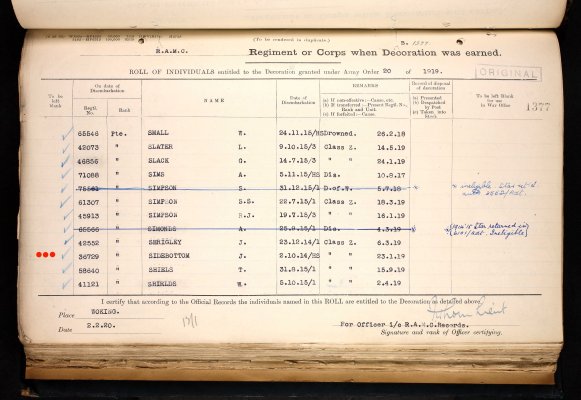 (To be rendered in duplicate.)
R.A.M.C. Regiment or Corps when Decoration was earned.
ROLL OF INDIVIDUALS entitled to the Decoration granted under Army Order 20 of 1919.
ORIGINAL
To be left blank
On date of Disembarkation
Regtl. No. Rank
NAME
Date of Disembarkation
REMARKS
(a) If non-effective:—Cause, etc.
(b) If transferred:—Present Regtl. No., Rank and Unit.
(c) If forfeited:—Cause.
Record of disposal of decoration
(a) Presented
(b) Despatched by Post
(c) Taken into Stock
To be left Blank for use in War Office
1377
65546 Pte. SMALL W. 24.11.15/HS Drowned. 26.2.18
42073 " SLATER L. 9.10.15/3 Class Z. 14.5.19
46856 " SLACK G. 14.7.15/3 " " 24.1.19
71088 " SIMS A. 5.11.15/HS Dis. 10.8.17
75501 " SIMPSON S. 31.12.15/1 D.of.W. 5.7.18
61307 " SIMPSON S.S. 22.7.15/1 Class Z. 18.3.19
45913 " SIMPSON R.J. 19.7.15/3 " " 16.1.19
65566 " SIMONDS A. 25.9.15/1 Dis. 4.3.19 Star returned Ineligible)
42552 " SHRIGLEY J. 23.12.14/1 Class Z. 6.3.19
36729 " SIDEBOTTOM J. 2.10.14/HS " " 23.1.19
58640 " SHIELS T. 31.8.15/1 " " 15.9.19
41121 " SHIELDS W. 5.10.15/1 " " 2.4.19
I certify that according to the Official Records the individuals named in this ROLL are entitled to the Decoration as detailed above.
Place WOKING.
Date 2.2.20.
Lieut
For Officer i/c R.A.M.C. Records.
Signature and rank of Officer certifying.